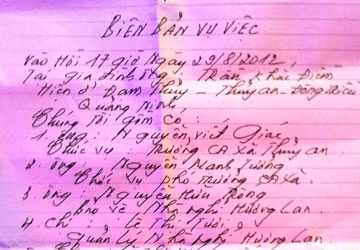 BIÊN BẢN VỤ VIỆC
Vào Hồi 17 giờ Ngày 29/8/2012,
Tại gia đình ông Trần Khải Điềm
Hiện ở Đạm Thủy - Thủy an - Đông Triều
Quảng Ninh,
Chúng Tôi gồm có:
1. ông: Nguyễn Viết Giác
Chức vụ: Trưởng CA xã Thủy an
2. ông: Nguyễn Mạnh Tường
Chức vụ: Phó trưởng CA xã.
3. ông: Nguyễn Hữu Rồng
Bảo vệ Nhà nghỉ Hương Lan.
4. Chị: Lê Thị Tươi
Quản Lý Nhà nghỉ Hương Lan